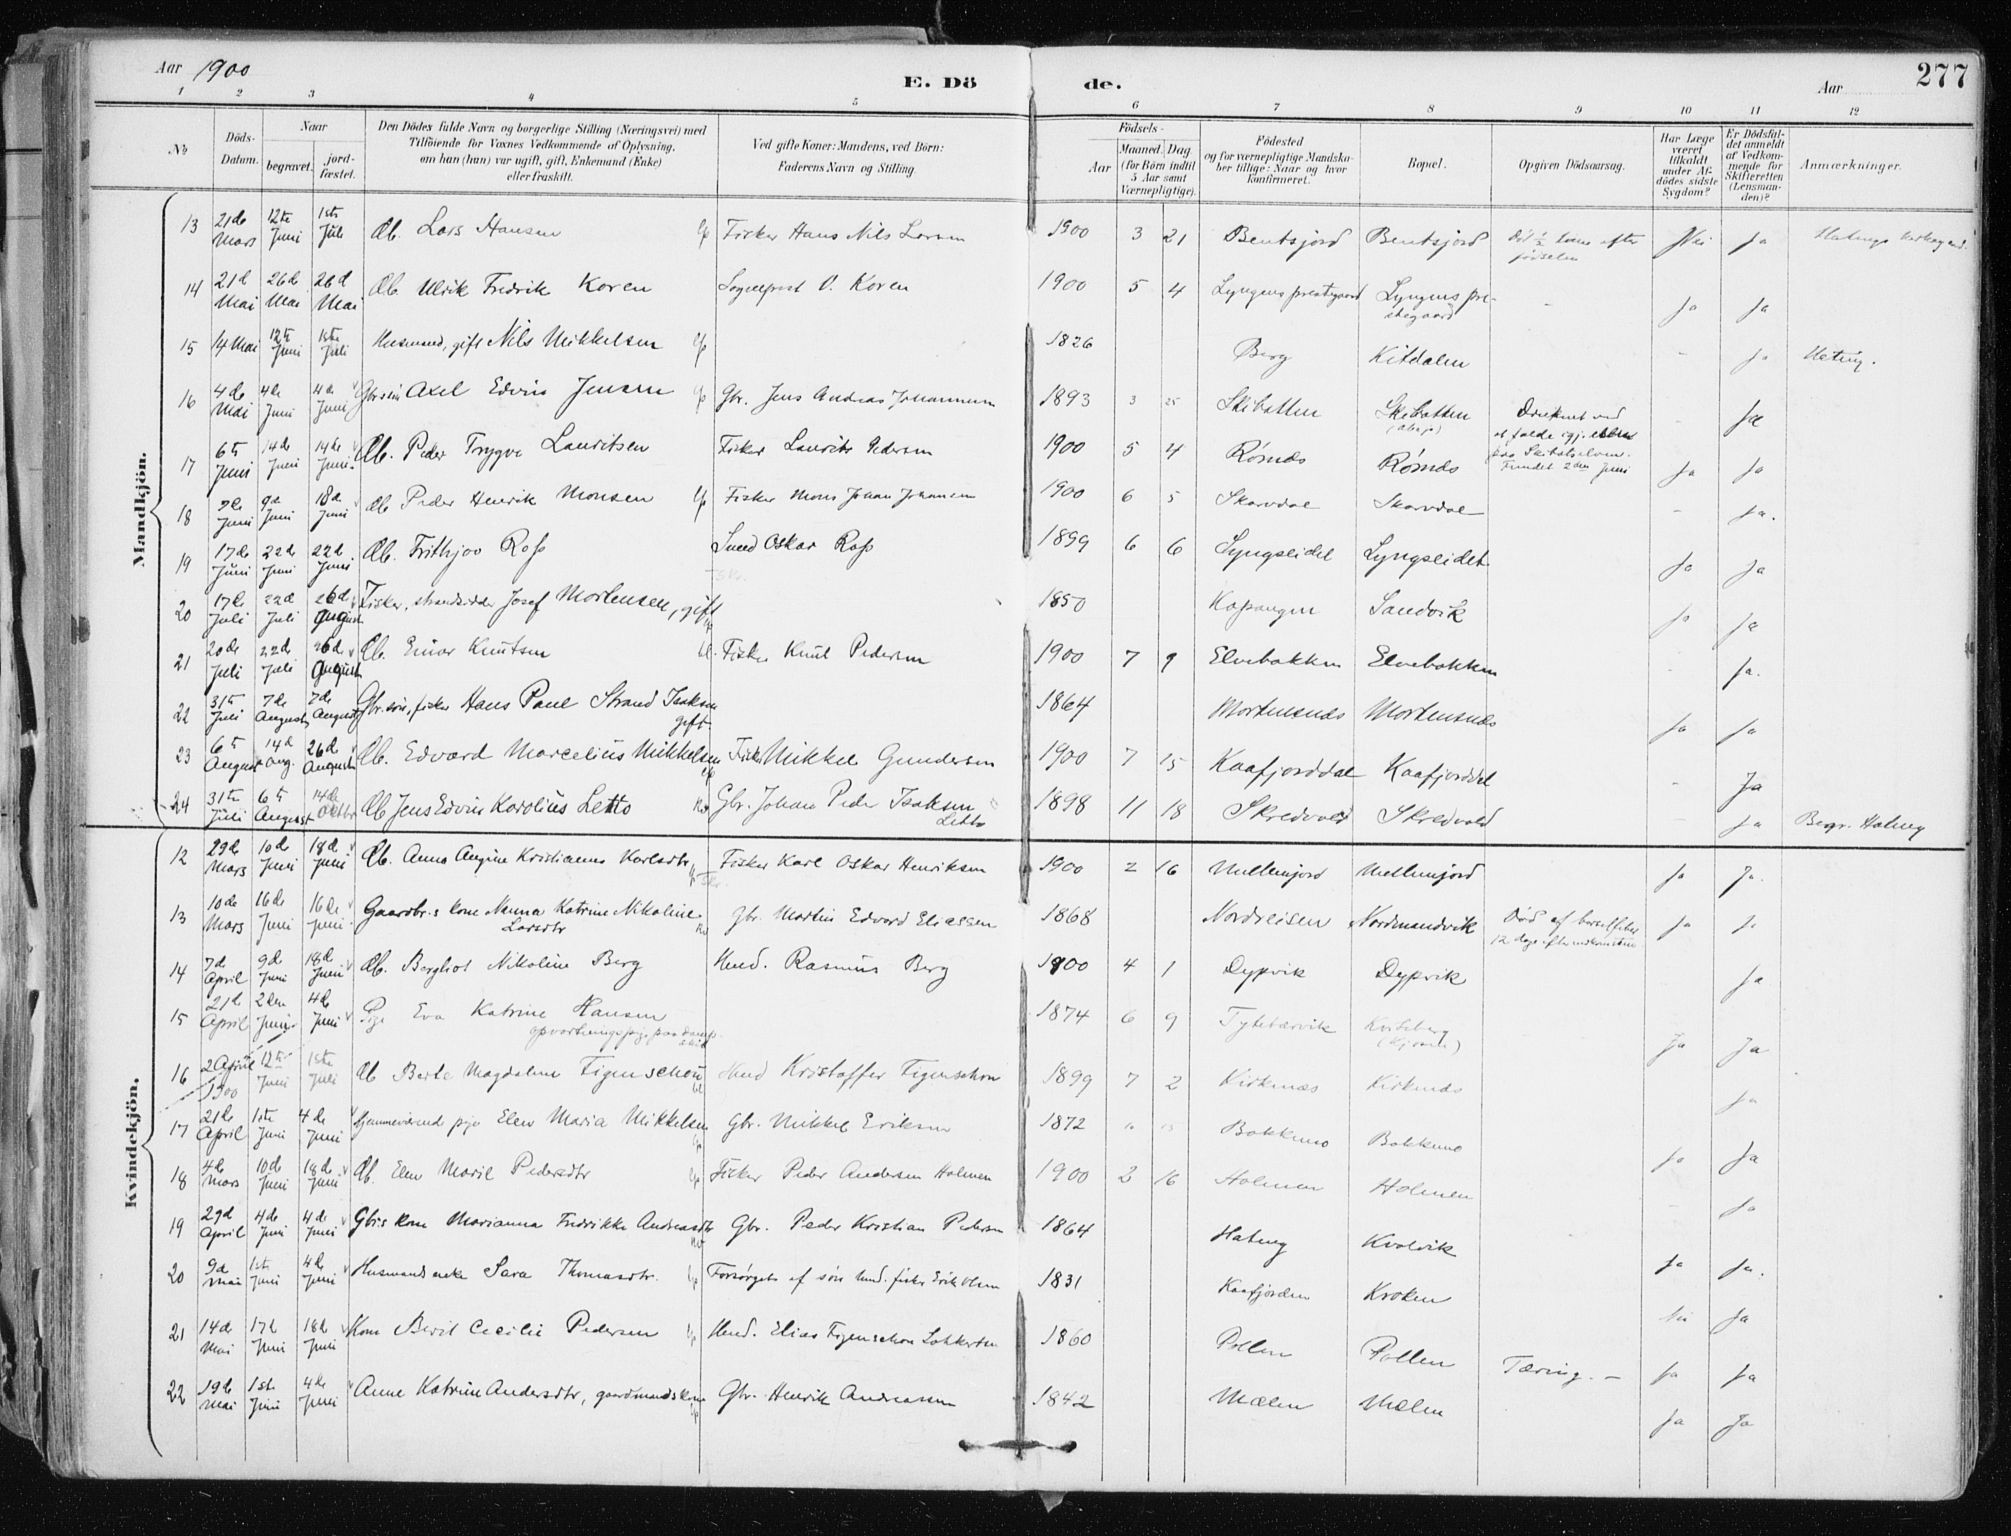 Aar 1900
E. Döde.
Aar
277
1 2 3 4 5 6 7 8 9 10 11 12
No
Döds-Datum.
Naar
begravet.
jord-fæstet.
Den Dödes fulde Navn og borgerlige Stilling (Næringsvei) med
Tilföiende for Voxnes Vedkommende af Oplysning,
om han (hun) var ugift, gift, Enkemand (Enke)
eller fraskilt.
Ved gifte Koner: Mandens, ved Börn:
Faderens Navn og Stilling.
Födsels-
Aar
Maaned. Dag
(for Börn indtil
5 Aar samt
Værnepligtige).
Födested
og for værnepligtige Mandska-
ber tillige: Naar og hvor
konfirmeret.
Bopæl.
Opgiven Dödsaarsag.
Har Læge
været
tilkaldt
under Af-
dödes sidste
Sygdom?
Er Dödsfal-
det anmeldt
af Vedkom-
mende for
Skifteretten
(Lensman-
den)?
Anmærkninger.
Mandkjön.
13 21de Mars 12te Juni 1ste Juli Ob. Lars Hansen Fisker Hans Nils Larsen 1900 3 21 Bentsjord Bentsjord Død ½ time efter fødselen Nei Ja
14 21d Mai 26de Mai 26d Mai Ob. Ulrik Fredrik Koren Sogneprest O. Koren 1900 5 4 Lyngens prestegaard Lyngens prestegaard - Ja Ja
15 14 Mai 12te Juni 1ste Juli Husmand, gift Nils Mikkelsen 1826 Berg Kitdalen - Ja Hateng.
16 4de Mai 4de Juni 4de Juni Gbr. søn Axel Edvin Jensen Gbr. Jens Andreas Johannesen 1893 3 25 Skibotten Skibotten Druknet ved at falde paa Skibotelven. Fundet 2den Juni - Ja
17 6te Juni 14de Juni 14de Juni Ob. Peder Trygve Lauritsen Fisker Laurits Pedersen 1900 5 4 Rørnæs Rørnæs Ja Ja
18 9de Juni 9de Juni 18de Juni Ob Peder Henrik Monsen Fisker Mons Johan Johansen 1900 6 5 Skarvdal Skarvdal - Ja.
19 17de Juni 22de Juni 22de Juni Ob. Frithjov Ross Smed Oskar Ross 1899 6 6 Lyngseidet Lyngseidet Ja Ja
20 17de Juli 22de Juli 26de August Fisker, strandsidder Josef Mortensen, gift 1850 Kopangen Sandvik Ja Ja
21 20de Juli 22de Juli 26de August Ob. Einar Knutsen Fisker Knut Pedersen 1900 7 9 Elvebakken Elvebakken - Ja.
22 31te Juli 7de August 7de August Gbr. søn, fisker Hans Paul Strand Isaksen gift. 1864 Mortensnæs Mortensnæs Ja Ja
23 6te August 14d Aug. 26de August Ob. Edvard Marcelius Mikkelsen Fisker Mikkel Gundersen 1900 7 15 Kaafjorddal Kaafjorddal - Ja
24 31te Juli 6te August 14de Octbr Ob Jens Edvin Karolius Letto Gbr. Johan Peder Isaksen Letto 1898 11 18 Skredvold Skredvold Ja Begr. Hateng
Kvindekjön.
12 29de Mars 10de Juni 18de Juni Ob. Anna Angine Kristianna Karlsdtr Fisker Karl Oskar Henriksen 1900 2 16 Mellemjord Mellemjord Ja Ja.
13 10de Mars 16de Juni 16de Juni Gaardbr.s kone Nanna Katrine Nikoline Larsdtr Gbr. Martin Edvard Eliassen 1868 Nordreisen Nordmandvik Død af barselfeber 12 dage efter Ja Ja
14 7d April 9d Juni 18de Juni Ob. Bergliot Nikoline Berg Hmd. Rasmus Berg 1900 4 1 Dypvik Dypvik Ja
15 21d April 2den Juni 4de Juni Pige Eva Katrine Hansen opvartningspige paa dampskib 1874 6 9 Tytebærvik Kviteberg - Ja Ja
16 2 April 1900 12te Juni 1ste Juli Ob Berte Magdalene Figenschou Hmd Kristoffer Figenschou 1899 7 2 Kirkenæs Kirkenæs Ja
17 21de April 1ste Juni 4de Juni Hjemmeværende pige Elen Maria Mikkelsen Gbr. Mikkel Eriksen 1872 Bakkemo Bakkemo Ja Ja
18 4de Mars 10de Juni 18de Juni Ob. Elen Marit Pedersdtr Fisker Peder Andersen Holmen 1900 2 16 Holmen Holmen - Ja
19 29d April 4de Juni 4de Juni Gbr.s kone Marianna Fredrikke Andreasdtr Gbr. Peder Kristian Pedersen 1864 Hateng Kvalvik Ja Ja.
20 9d Mai 1ste Juni 4de Juni Husmandsenke Sara Thomasdtr. Forsørget af søn hmd. fisker Erik Olsen 1831 Kaafjorden Kroken Nei Ja
21 14de Mai 17d Juni 18d Juni Kone Berit Cecilie Pedersen Hmd. Elias Figenschou 1860 Pollen Pollen Tæring. - Ja Ja
22 19de Mai 1ste Juni 4de Juni Anne Katrine Andersdtr, gaardmandskone Gbr. Henrik Andreassen 1842 Mælen Mælen Ja Ja